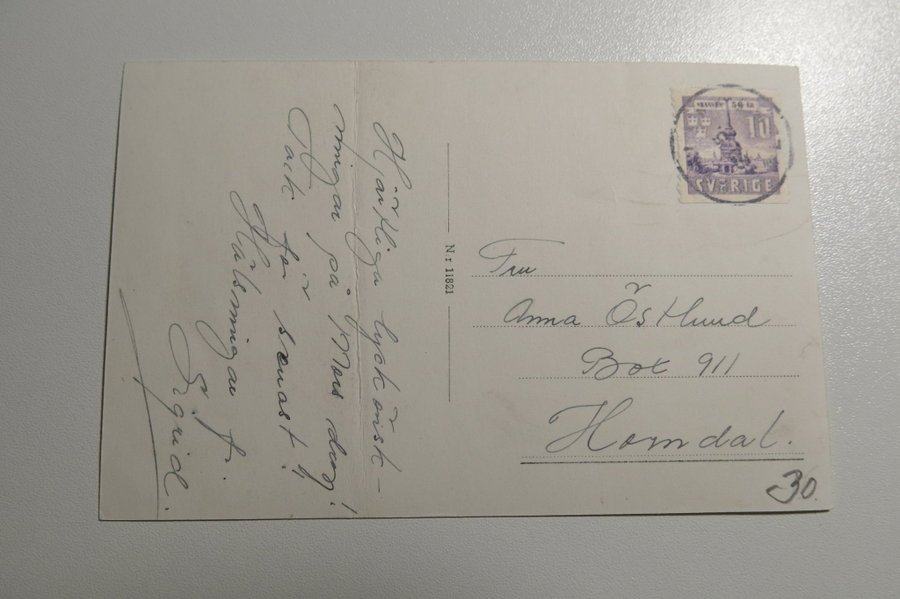 Hjärtliga lyckönsk-
ningar på Mors dag!
Tack för senast!
Hälsningar fr.
Sigrid.
Nr 11821
SKANSEN 50 ÅR
10
SVERIGE
Fru
Anna Östlund
Box 911
Horndal.
30.